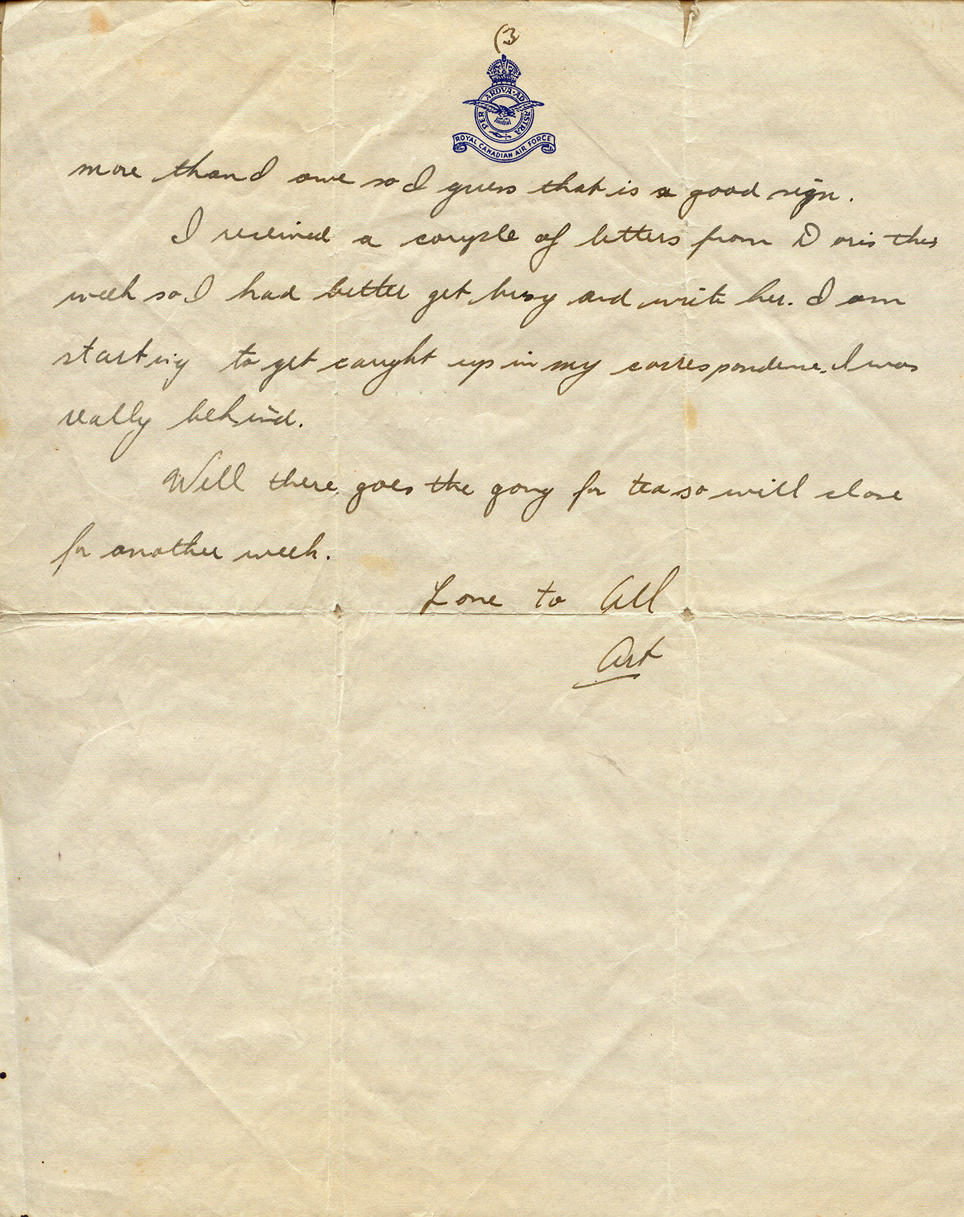 (3
PER ARDVA AD ASTRA
ROYAL CANADIAN AIR FORCE
more than I owe so I guess that is a good sign.
I received a couple of letters from Doris this
week so I had better get busy and write her. I am
starting to get caught up in my correspondence. I was
really behind.
Well there goes the gong for tea so will close
for another week.
Love to All
Art